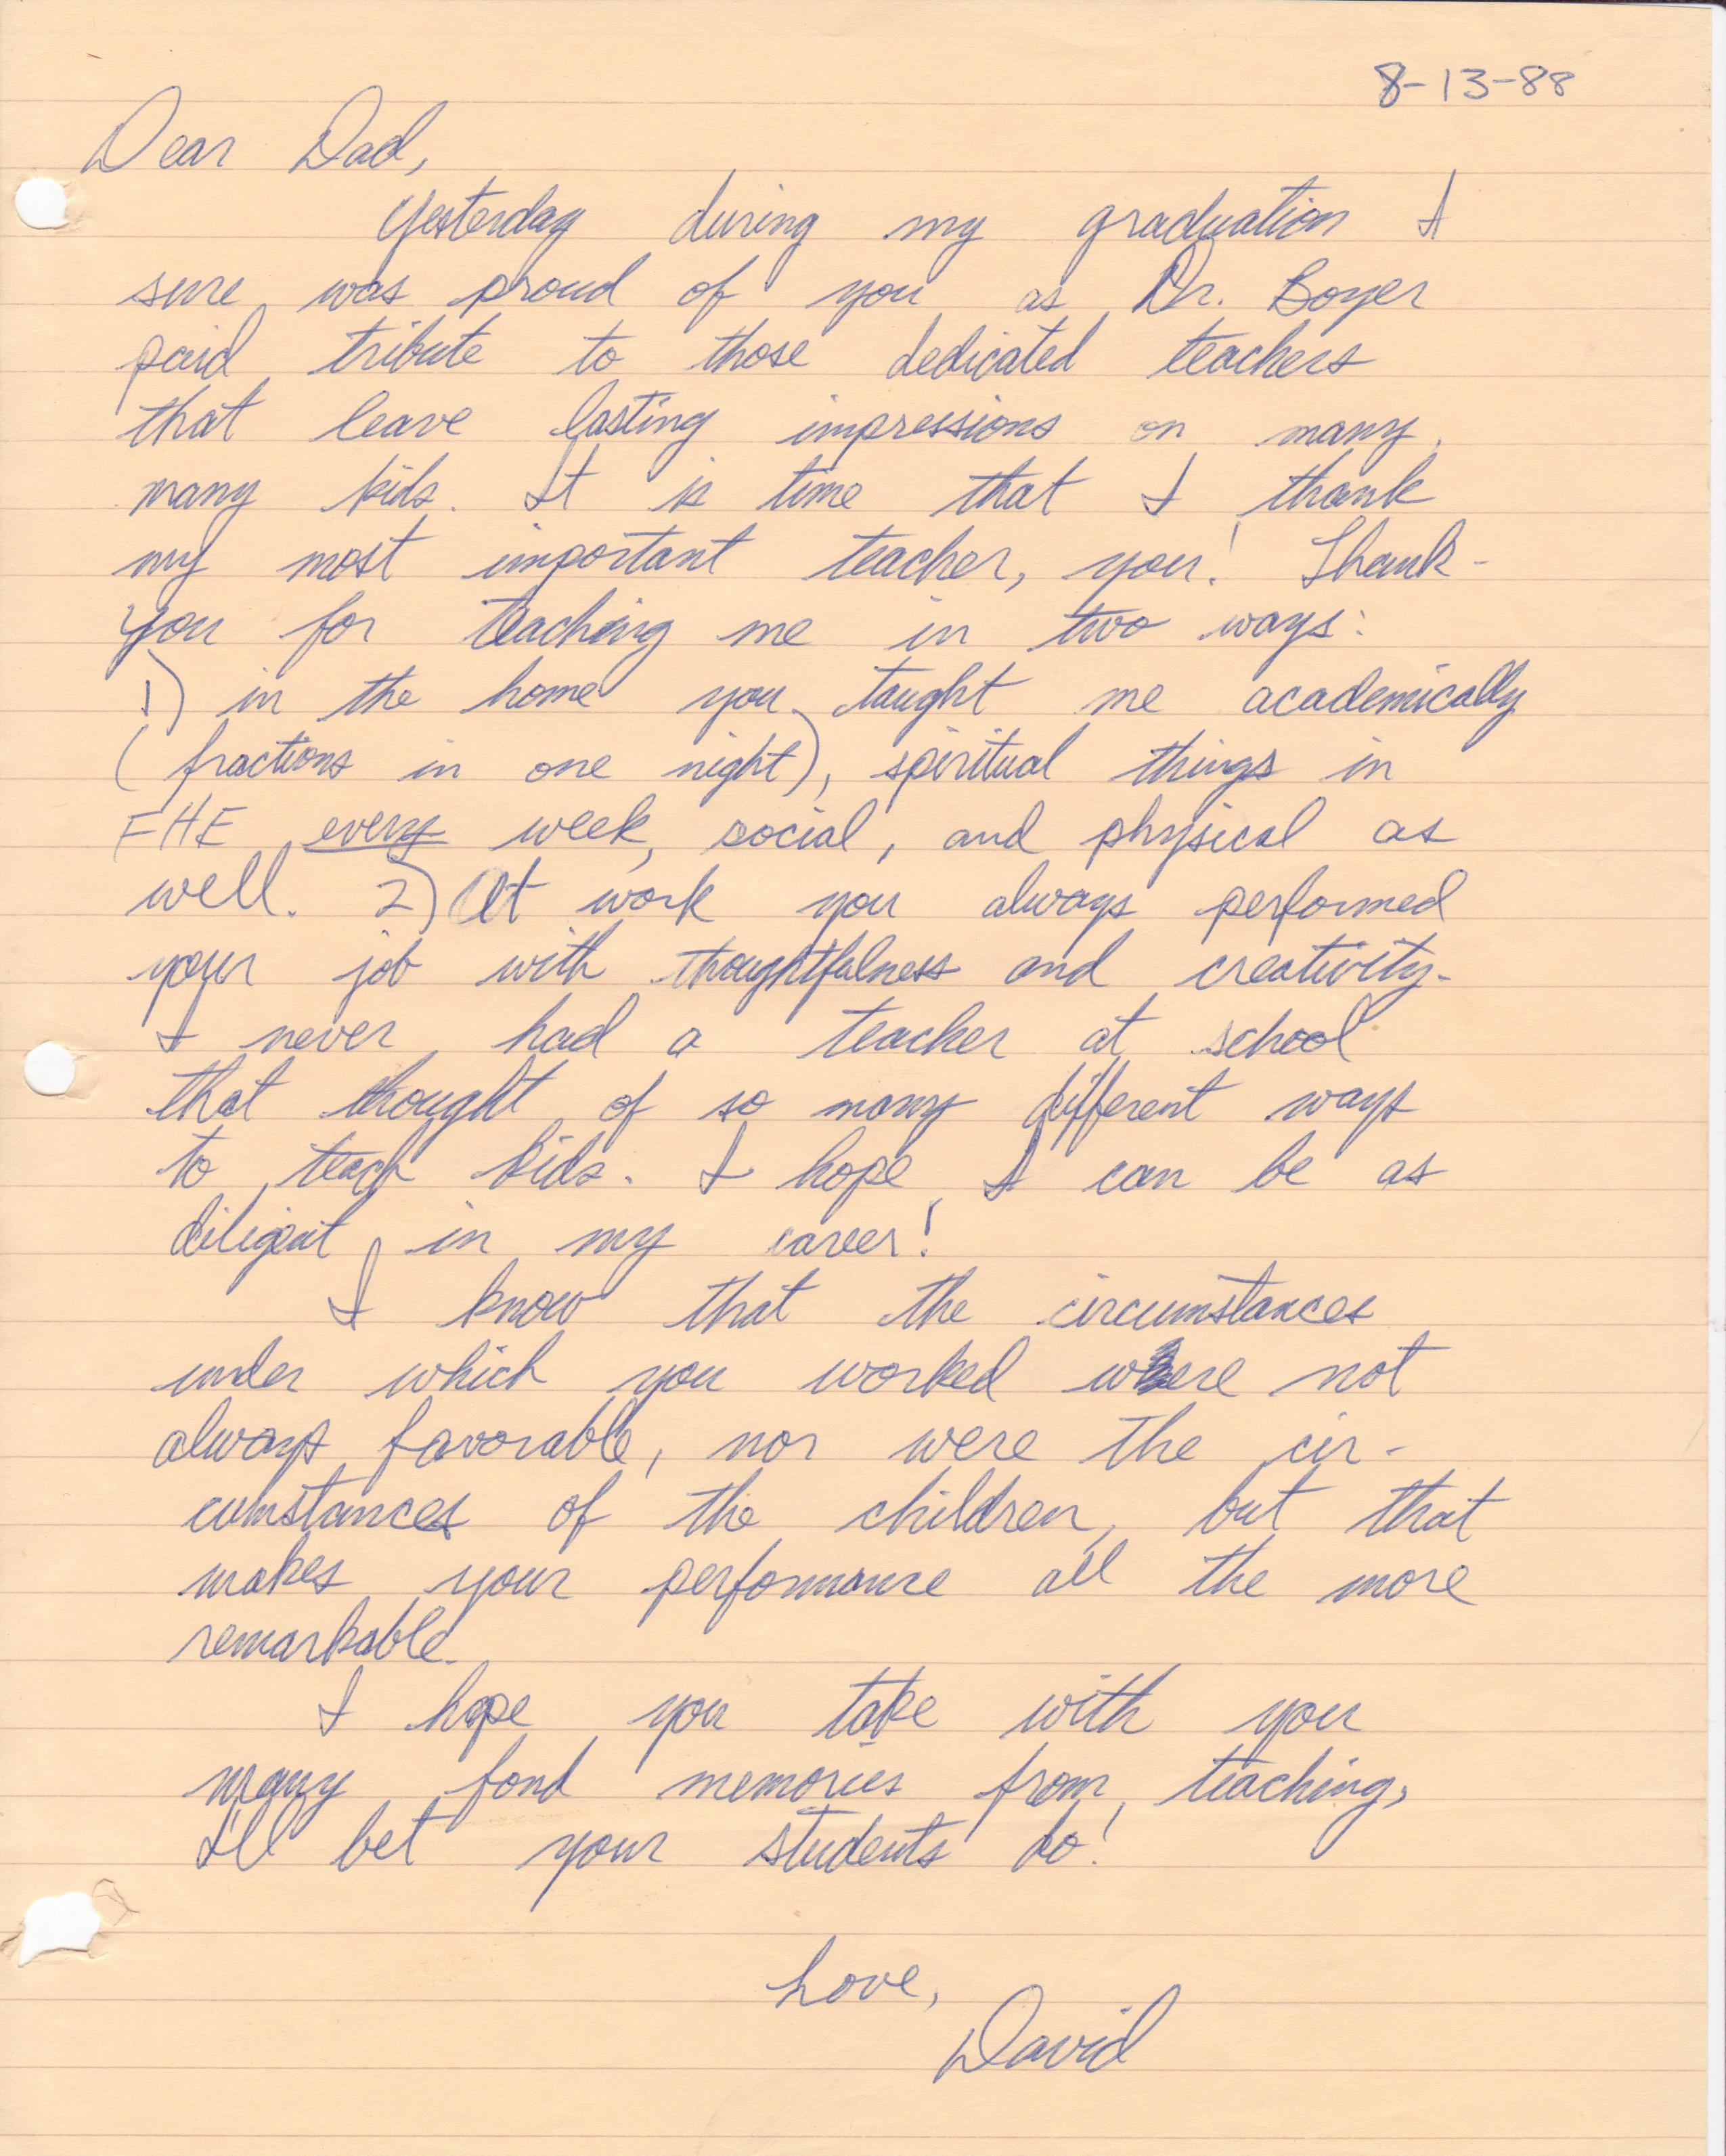 8-13-88
Dear Dad,
Yesterday during my graduation I
sure was proud of you as Dr. Boyer
paid tribute to those dedicated teachers
that leave lasting impressions on many,
many kids. It is time that I thank
my most important teacher, you! Thank-
you for teaching me in two ways:
1) in the home you taught me academically
(fractions in one night), spiritual things in
FHE every week, social, and physical as
well. 2) At work you always performed
your job with thoughtfulness and creativity.
I never had a teacher at school
that thought of so many different ways
to teach kids. I hope I can be as
diligent in my career!
I know that the circumstances
under which you worked were not
always favorable, nor were the cir-
cumstances of the children, but that
makes your performance all the more
remarkable.
I hope you take with you
many fond memories from teaching,
I'll bet your students do!
Love,
David